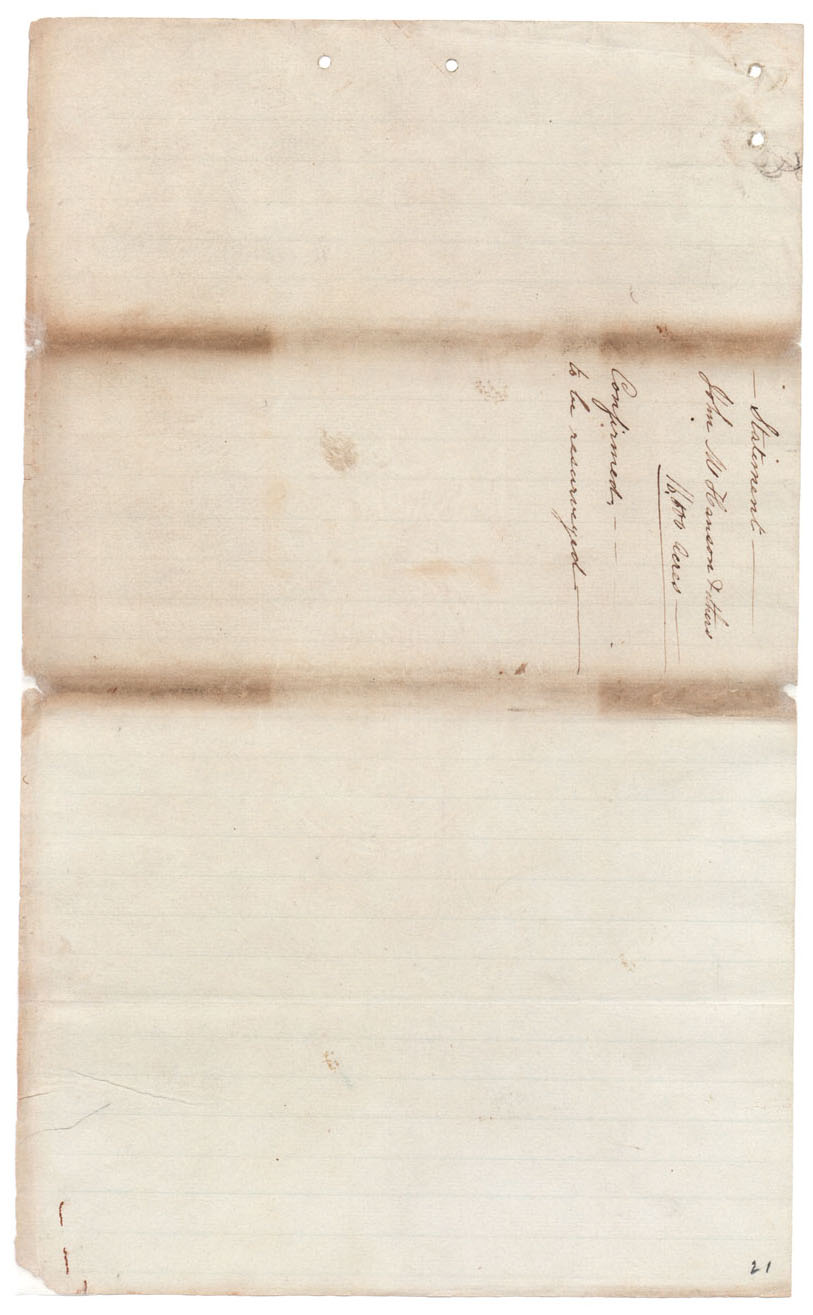 — Statement —
John M Hanson & others
16,000 Acres —
Confirmed, - -
to be resurveyed —
21